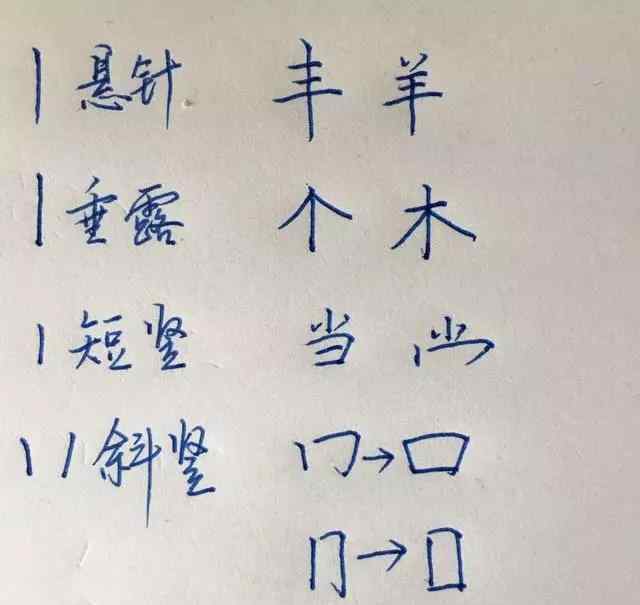 丨悬针 丰 羊
丨垂露 个 木
丨短竖 当 𫩠
丨丨斜竖 冂→口
冂→口